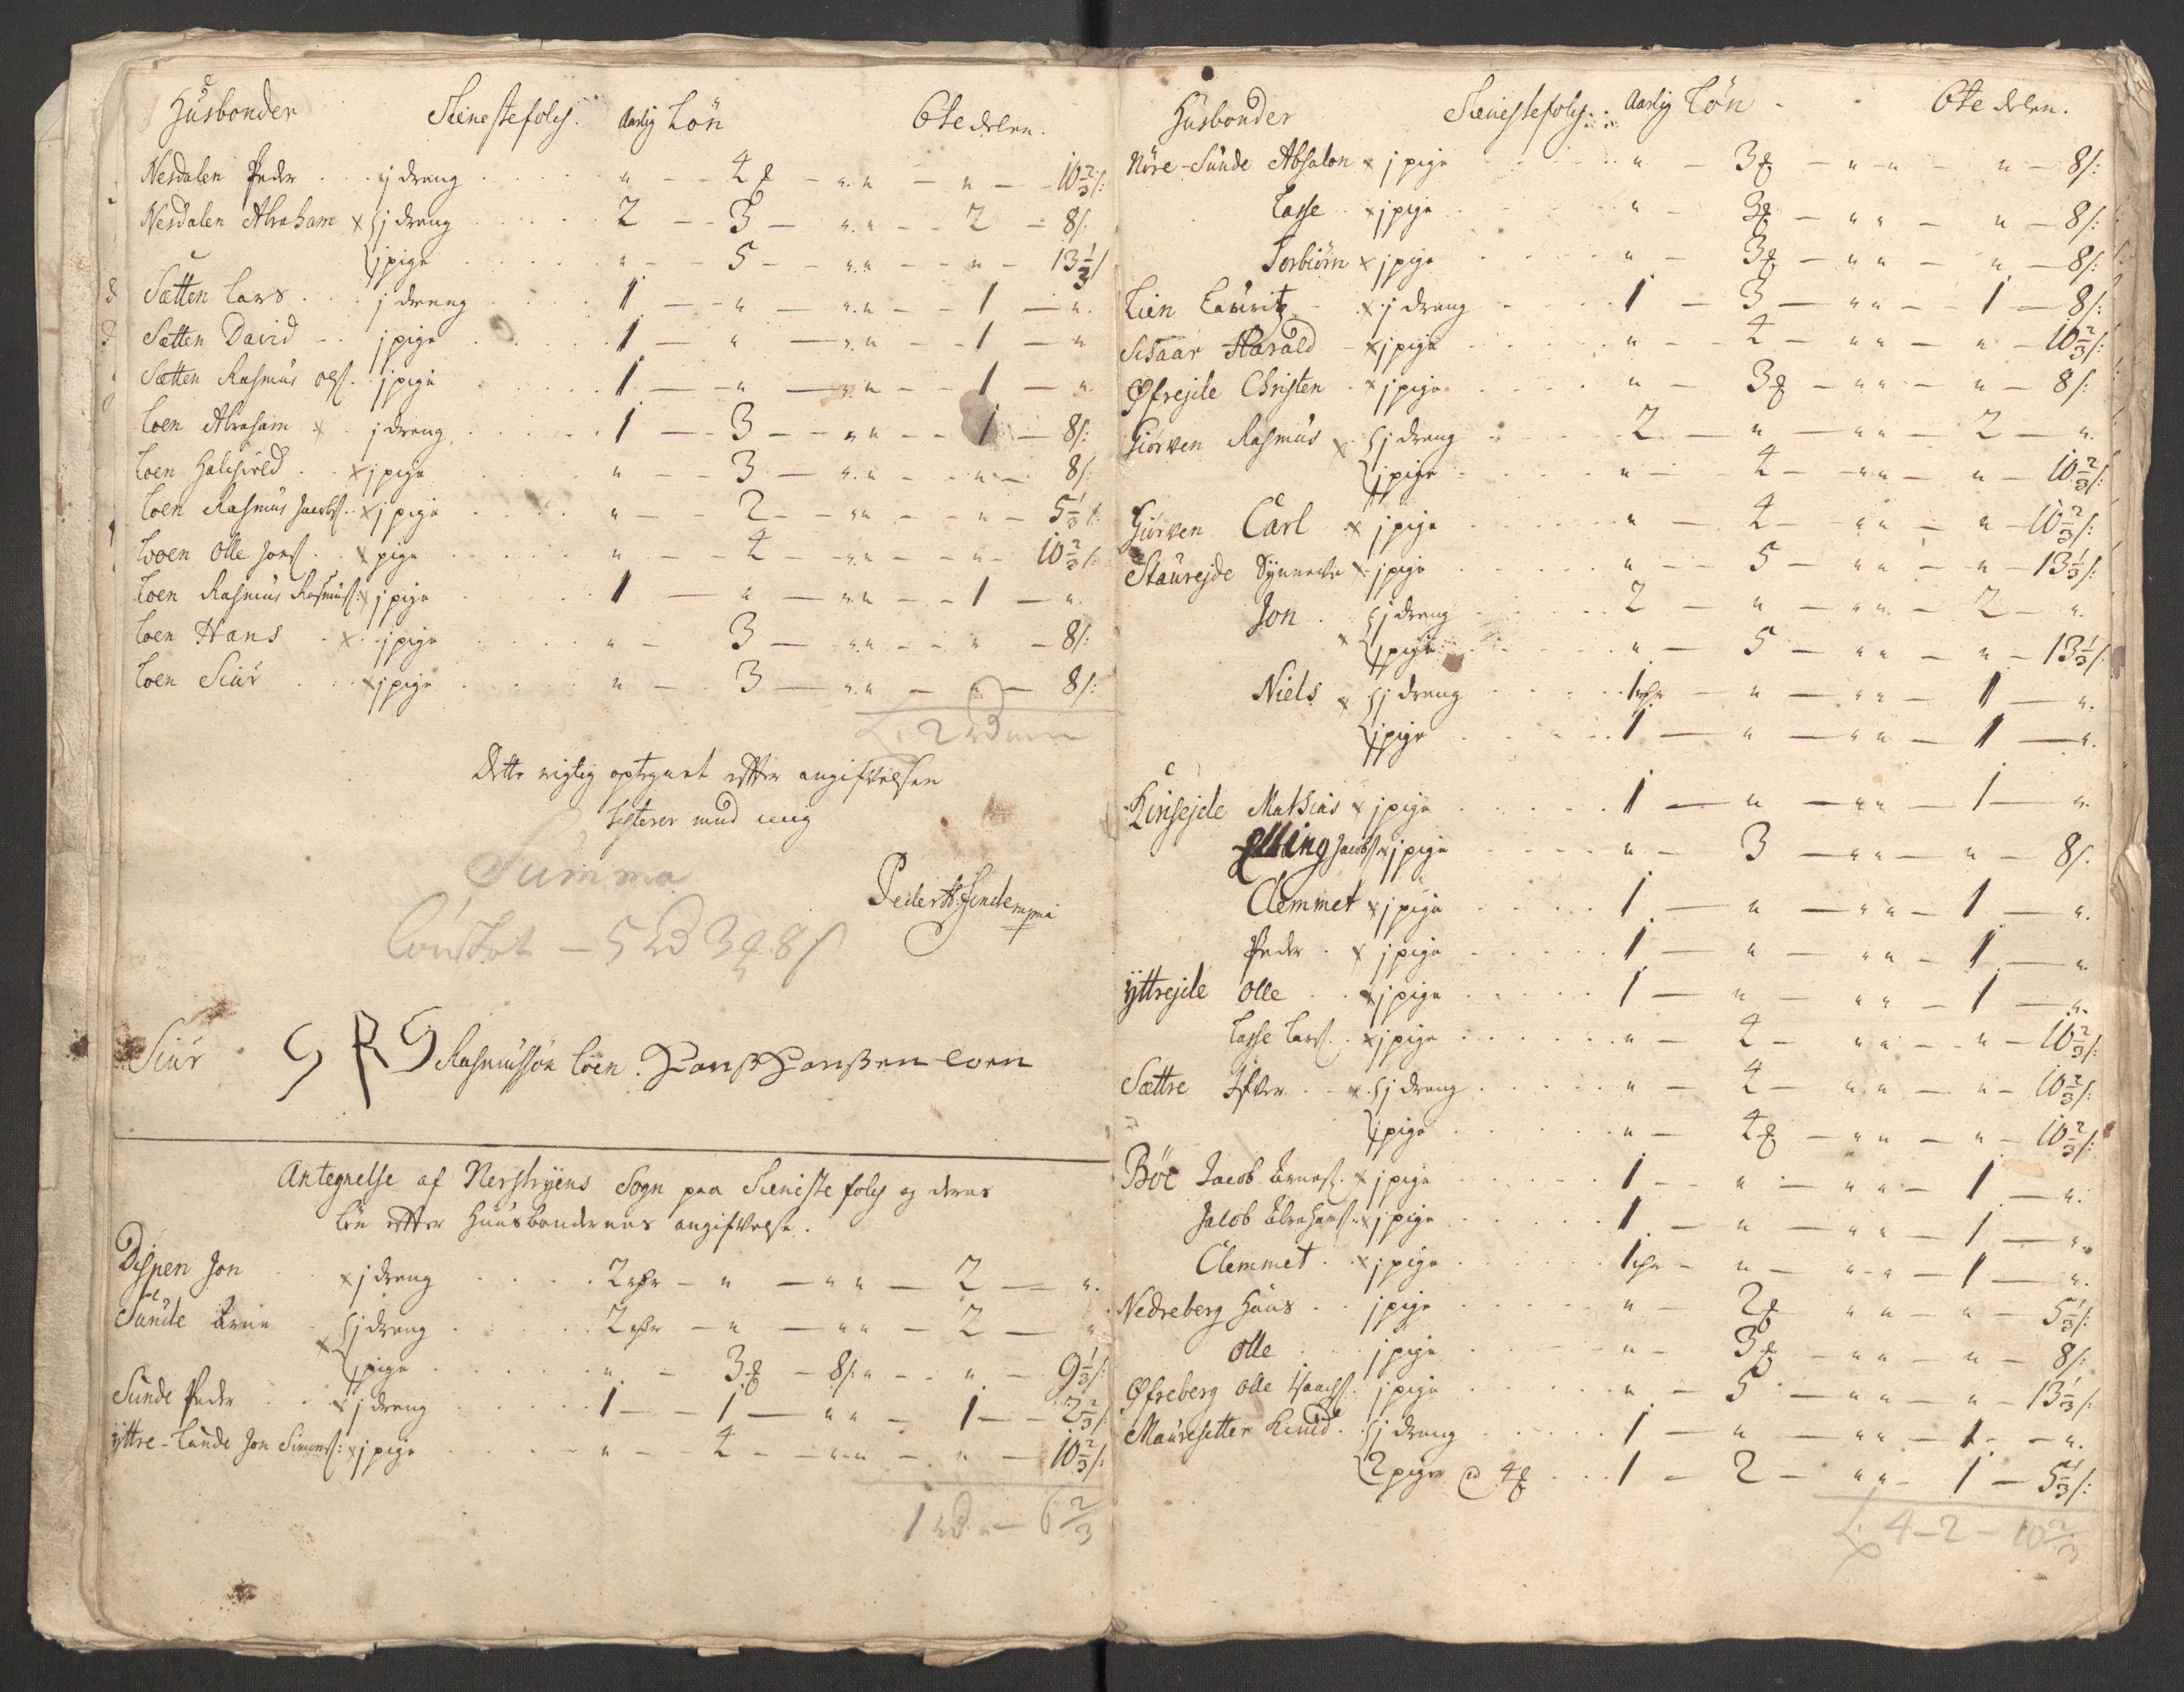 Husbonder Tienestefolch. Aarlig Løn 6te delen.
Nesdalen Peder . . . j dreng . . . . . " - - 4 ₰ - " " - " - - 10 2/3 s:
Nesdalen Abraham x { j dreng . . . . 2 - - 3 - " " - - 2 - 8 s:
{ j pige . . . . . " - - 5 - - " " - - " - 13 1/3 s
Sætten Lars . . . j dreng . . . . 1 - - " - " " - - 1 - ".
Sætten David - . . j pige . . . . . 1 - " - " " - - 1 - "
Sætten Rasmus Ols: . . j pige . . . . 1 - - " - " " - - 1 - "
Loen Abraham x . j dreng . . . . . 1 - - 3 - - " " - - 1 - 8 s:
Loen . . x j pige . . . " - - 3 - " " - - " - 8 s:
Loen Rasmus Jacobs: . . x j pige . . . . " - - 2 - - " " - - " - 5 1/3 s:
Looen Olle Jons: . . x pige . . . . . " - - 4 - - " " - - " - 10 2/3 s:
Loen Rasmus Rasmuss: x j pige . . . . 1 - " - " " - - 1 - ".
Loen Hans . x . . j pige . . . . " - 3 - " " - - " - 8 s:
Loen Siur . . . x j pige . . . . " - . 3 - " " - " - 8 s:
2 rd
Dette rigtig optegnet efter angifvelsen
testerer med mig
Summa
5 rd 3 ₰ 8 s
Peder mpria
Siur S R S Rasmussøn Loen . Hanß Hanßen loen
Antegnelse af Nerstryens Sogn paa Tieniste folch og deres
Løn efter Huusbondernes angifvelse .
Dispen Jon . . x j dreng . . . . 2 rdr - " - " " - 2 - ".
Sunde Arne . { j dreng . . . . . 2 rdr - " - " " - 2 - "
x { j pige . . . . . . " - 3 ₰ - 8 s: " - - " - 9 1/3 s:
Sunde Peder . . x j dreng . . . . . 1 - - 1 - " " - 1 - - 2 2/3 s:
Yttre-Sunde Jon Simens: x j pige . . . . " - - 4 - - " " - " - 10 2/3 s:
1 rd " - 6 2/3
Husbonder Tienestefolch. : Aarlig Løn - . 6te delen.
Nøre-Sunde Absalon x j pige . . . . . " - 3 ₰ - " " - " - 8 s:
Lasse . . x j pige . . . . " - 3 ₰ - " " - " - 8 s:
Torbiørn x j pige . . . . " - 3 ₰ - " " - " - 8 s:
Lien Lauritz . x j dreng . . . . 1 - 3 - " " - - 1 - 8 s:
Harald - x j pige . . . . . " - - 4 - " " - " - 10 2/3 s:
Øfrejde Christen . x j pige . . . . " - 3 ₰ - " " - " - 8 s:
Giørven Rasmus x . { j dreng . . . . 2 - " - " " - 2 - ".
{ j pige . . . . " - . 4 - " " - " - 10 2/3 s:
Giørven Carl x j pige . . . . . " - 4 - " " - " - 10 2/3 s:
Staurejde Synneve x j pige . . . . . " - - 5 - " " - " - 13 1/3 s:
Jon . . { j dreng . . . . . 2 - " - " " - 2 - ".
x { j pige . . . . . " - 5 - " " - " - 13 1/3 s:
Niels x { j dreng . . . . . 1 rdr - " - " " - 1 - ".
{ j pige . . . . . 1 - " - " " - 1 - ".
Kirkejde Mathias x j pige . . . . . 1 - " - " " - 1 - ".
Elling Jacobs: x j pige . . . . " - 3 - " " - " - 8 s.
Clemmet x j pige . . . . . 1 - " - " " - 1 - ".
Peder . x j pige . . . . . 1 - " - " " - 1 - "
Yttrejde Olle . . x j pige . . . . . 1 - " - " " - 1 - ".
Lasse Lars: . x j pige . . . . . . " - 4 - " " - " - 10 2/3 s:
Sættre Ifver . . x . { j dreng . . . . . " - 4 - " " - " - 10 2/3 s:
{ j pige . . . . . " - 4 ₰ - " " - " - 10 2/3 s:
Bøe Jacob Arnes: . x j pige . . . . . 1 - - " - " " - 1 - ".
Jacob Abrahams: x j pige . . . . . 1 - " - " " - 1 - ".
Clemmet . . x j pige . . . . . 1 rdr - " - " " - 1 - ".
Nedreberg Hans . . j pige . . . . . " - 2 ₰ - " " - " - 5 1/3 s:
Olle . . . j pige . . . . . " - 3 ₰ - " " - " - 8 s:
Øfreberg Olle Isachs: . j pige . . . . . " - 5 - " " - " - 13 1/3 s:
Mauresetter Knud . . { j dreng . . . . . 1 - " - " " - 1 - - ".
{ 2 piger @ 4 ₰ . . . 1 - 2 - " " - 1 - 5 1/3 s:
4 - 2 - 10 2/3